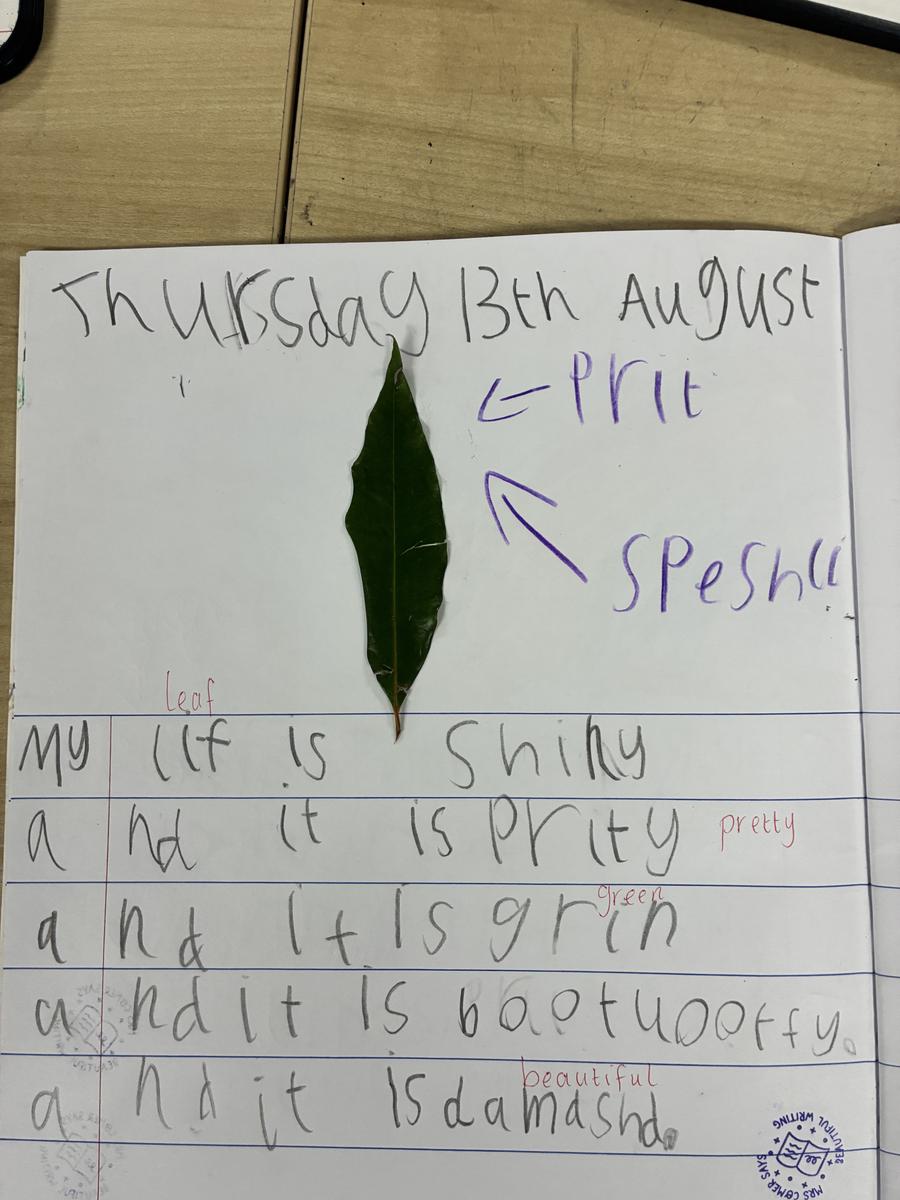 Thursday 13th August
← Prit
Speshll
leaf
My lif is Shiny
and it is Prity pretty
green
and It Is grin
and it Is baotuootfy.
beautiful
and it is damashd.
MRS COMER SAYS
BEAUTIFUL WRITING